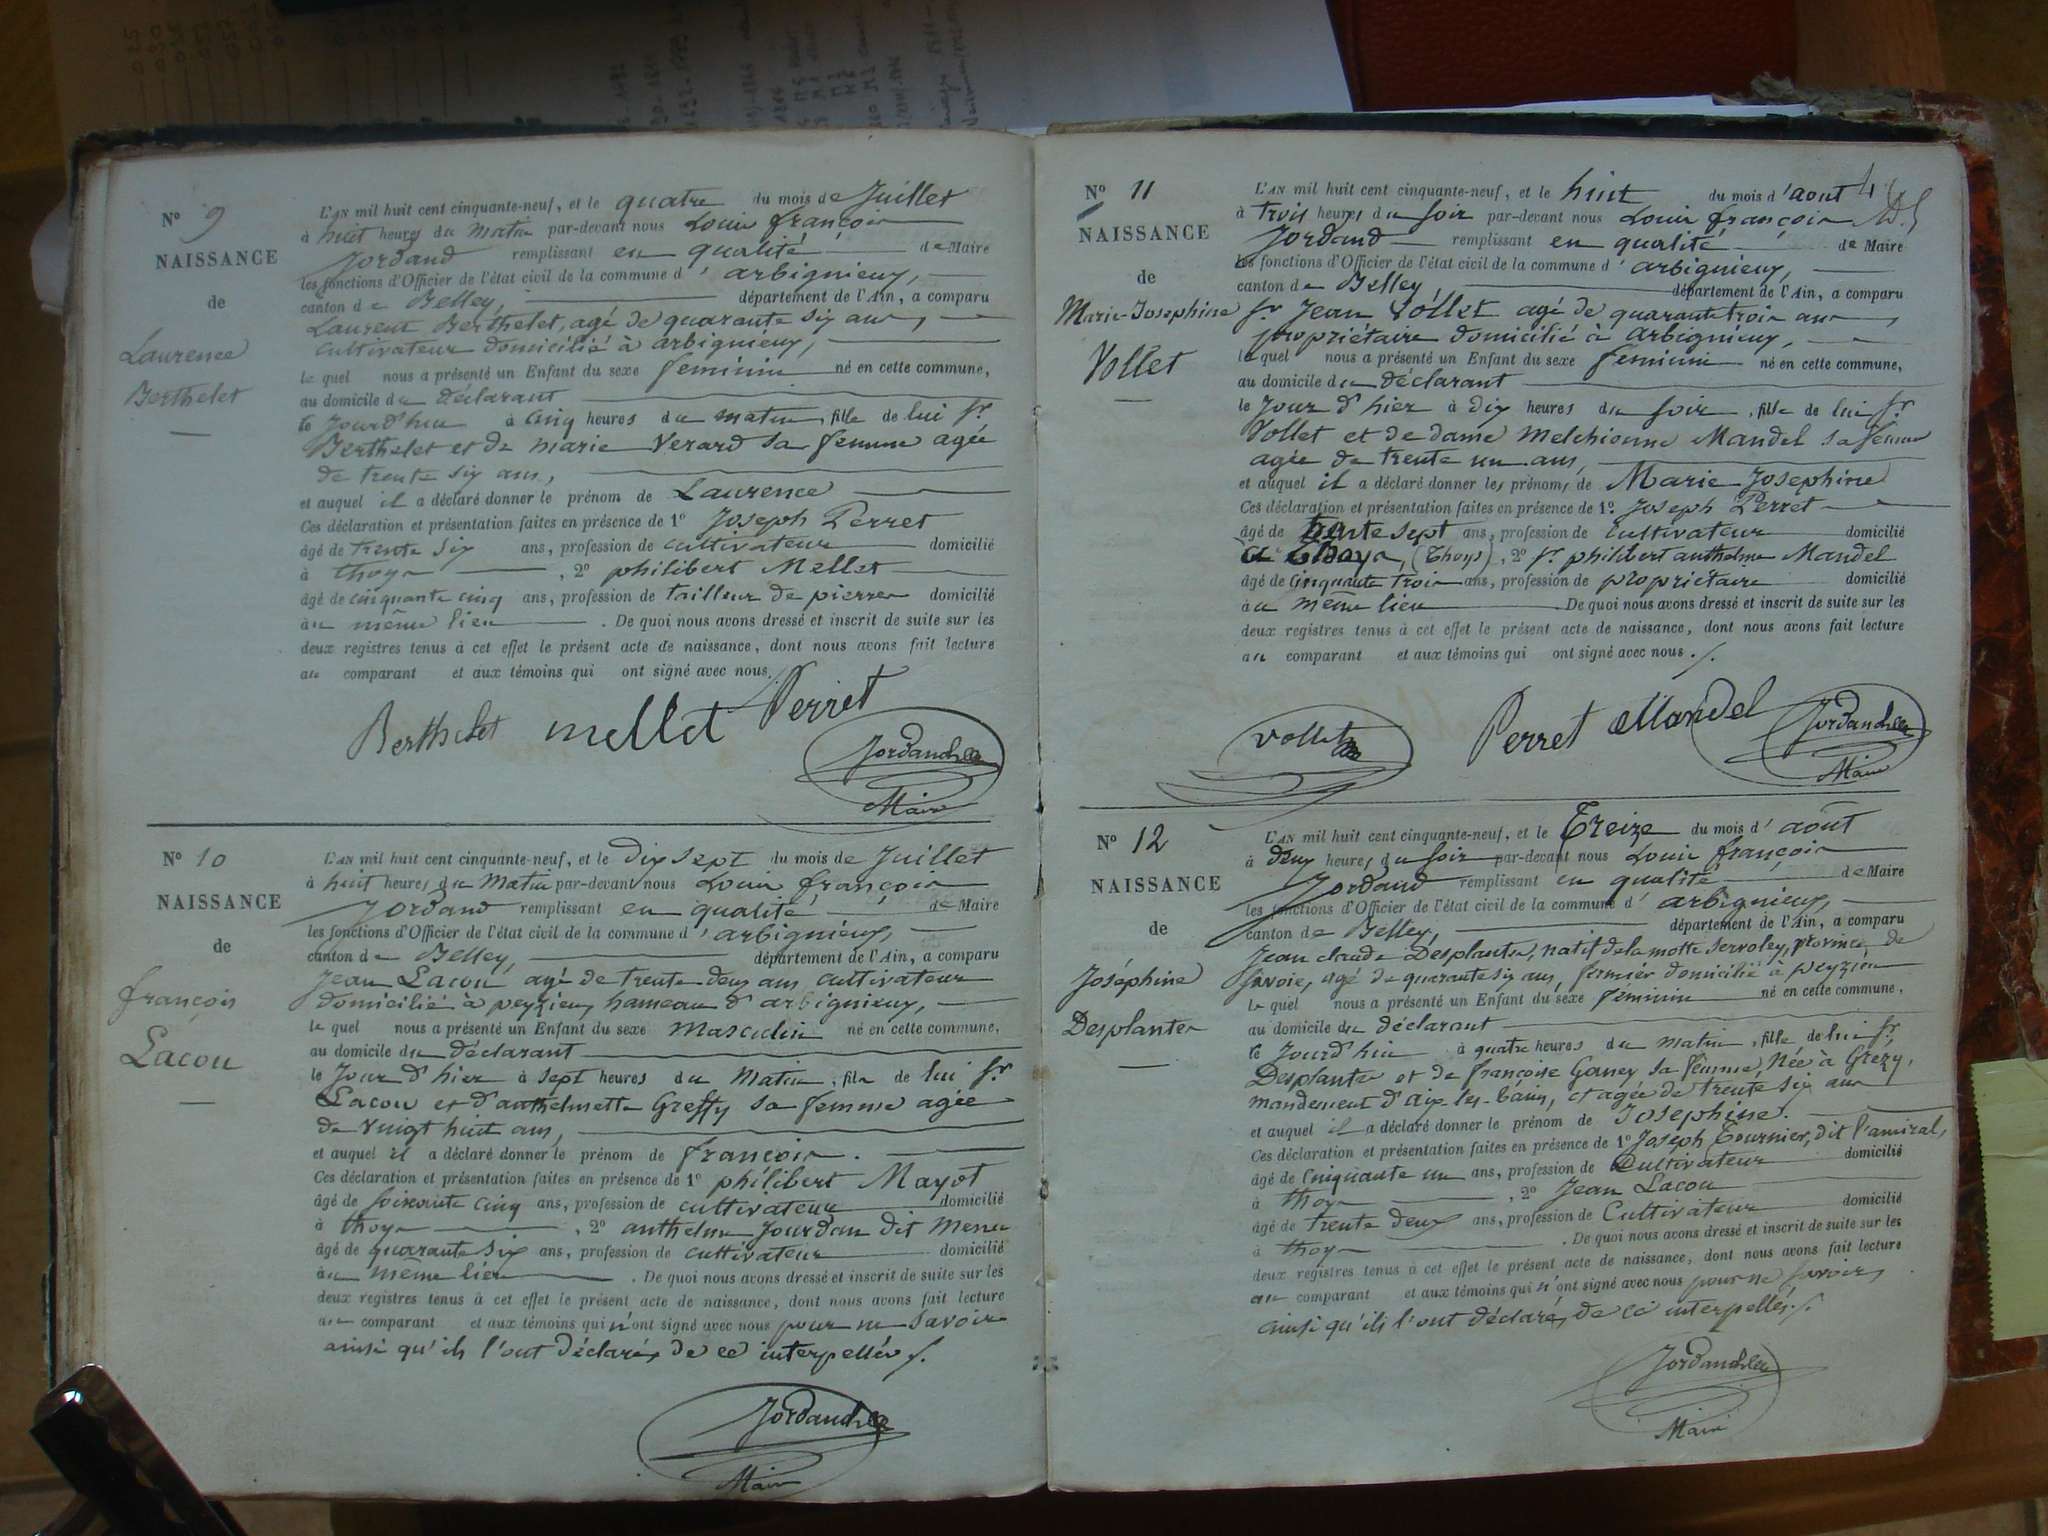 Nº 9
NAISSANCE
de
Laurence
Berthelet
L'AN mil huit cent cinquante-neuf, et le quatre du mois de Juillet
à huit heures du matin par-devant nous Louis françois
Jordand remplissant en qualité de Maire
les fonctions d'Officier de l'état civil de la commune d'arbignieux,
canton de Belley, département de l'Ain, a comparu
Laurent Berthelet, agé de quarante six ans,
cultivateur domicilié à arbignieux,
le quel nous a présenté un Enfant du sexe feminin né en cette commune,
au domicile du déclarant
le Jourd'hui à cinq heures du matin, fille de lui Sr
Berthelet et de marie Verard sa femme agée
de trente six ans,
et auquel il a déclaré donner le prénom de Laurence
Ces déclaration et présentation faites en présence de 1º Joseph Perret
âgé de trente six ans, profession de cultivateur domicilié
à thoys, 2º philibert Mellet
âgé de cinquante cinq ans, profession de tailleur de pierres domicilié
au même lieu. De quoi nous avons dressé et inscrit de suite sur les
deux registres tenus à cet effet le présent acte de naissance, dont nous avons fait lecture
au comparant et aux témoins qui ont signé avec nous.
Berthelet mellet Perret
Jordand
Maire
Nº 10
NAISSANCE
de
françois
Lacou
L'AN mil huit cent cinquante-neuf, et le dix sept du mois de Juillet
à huit heures du Matin par-devant nous Louis françois
Jordand remplissant en qualité de Maire
les fonctions d'Officier de l'état civil de la commune d'arbignieux,
canton de Belley, département de l'Ain, a comparu
Jean Lacou, agé de trente deux ans cultivateur
domicilié à peyzieu, hameau d'arbignieux,
le quel nous a présenté un Enfant du sexe Masculin né en cette commune,
au domicile du déclarant
le Jour d'hier à sept heures du Matin, fils de lui Sr
Lacou et d'anthelmette Greffy sa femme agée
de vingt huit ans,
et auquel il a déclaré donner le prénom de françois.
Ces déclaration et présentation faites en présence de 1º philibert Mayot
âgé de soixante cinq ans, profession de cultivateur domicilié
à thoys, 2º anthelme Jourdan dit Menu
âgé de quarante six ans, profession de cultivateur domicilié
au même lieu. De quoi nous avons dressé et inscrit de suite sur les
deux registres tenus à cet effet le présent acte de naissance, dont nous avons fait lecture
au comparant et aux témoins qui n'ont signé avec nous pour ne savoir
ainsi qu'ils l'ont déclaré, de ce interpellés.
Jordand
Maire
Nº 11
NAISSANCE
de
Marie-Josephine
Vollet
L'AN mil huit cent cinquante-neuf, et le huit du mois d'aout
à trois heures du soir par-devant nous Louis françois
Jordand remplissant en qualité de Maire
les fonctions d'Officier de l'état civil de la commune d'arbignieux,
canton de Belley, département de l'Ain, a comparu
Sr Jean Vollet agé de quarante trois ans
propriétaire domicilié à arbignieux,
le quel nous a présenté un Enfant du sexe feminin né en cette commune,
au domicile du déclarant
le Jour d'hier à dix heures du soir, fille de lui Sr
Vollet et de dame Melchionne Mandel sa femme
agée de trente un ans,
et auquel il a déclaré donner les prénoms de Marie Josephine
Ces déclaration et présentation faites en présence de 1º Joseph Perret
âgé de trente sept ans, profession de cultivateur domicilié
à Thoys, (Thoys), 2º Sr philibert anthelme Mandel
âgé de cinquante trois ans, profession de propriétaire domicilié
au même lieu De quoi nous avons dressé et inscrit de suite sur les
deux registres tenus à cet effet le présent acte de naissance, dont nous avons fait lecture
au comparant et aux témoins qui ont signé avec nous.
Vollet Perret Mandel Jordand
Maire
Nº 12
NAISSANCE
de
Joséphine
Desplantes
L'AN mil huit cent cinquante-neuf, et le Treize du mois d'août
à deux heures du soir par-devant nous Louis françois
Jordand remplissant en qualité de Maire
les fonctions d'Officier de l'état civil de la commune d'arbignieux,
canton de Belley, département de l'Ain, a comparu
Jean claude Desplantes, natif de la motte servolex, province de
Savoie, agé de quarante six ans, fermier domicilié à peyzieu
le quel nous a présenté un Enfant du sexe féminin né en cette commune,
au domicile du déclarant
le Jourd'hui à quatre heures du matin, fille de lui Sr
Desplantes et de françoise Ganey sa femme, Née à Grezy,
mandement d'aix-les-bains, et agée de trente six ans
et auquel il a déclaré donner le prénom de Josephine.
Ces déclaration et présentation faites en présence de 1º Joseph Tournier, dit l'amiral,
âgé de cinquante un ans, profession de cultivateur domicilié
à thoys, 2º Jean Lacou
âgé de trente deux ans, profession de Cultivateur domicilié
à thoys. De quoi nous avons dressé et inscrit de suite sur les
deux registres tenus à cet effet le présent acte de naissance, dont nous avons fait lecture
au comparant et aux témoins qui n'ont signé avec nous pour ne savoir,
ainsi qu'ils l'ont déclaré, de ce interpellés.
Jordand
Maire